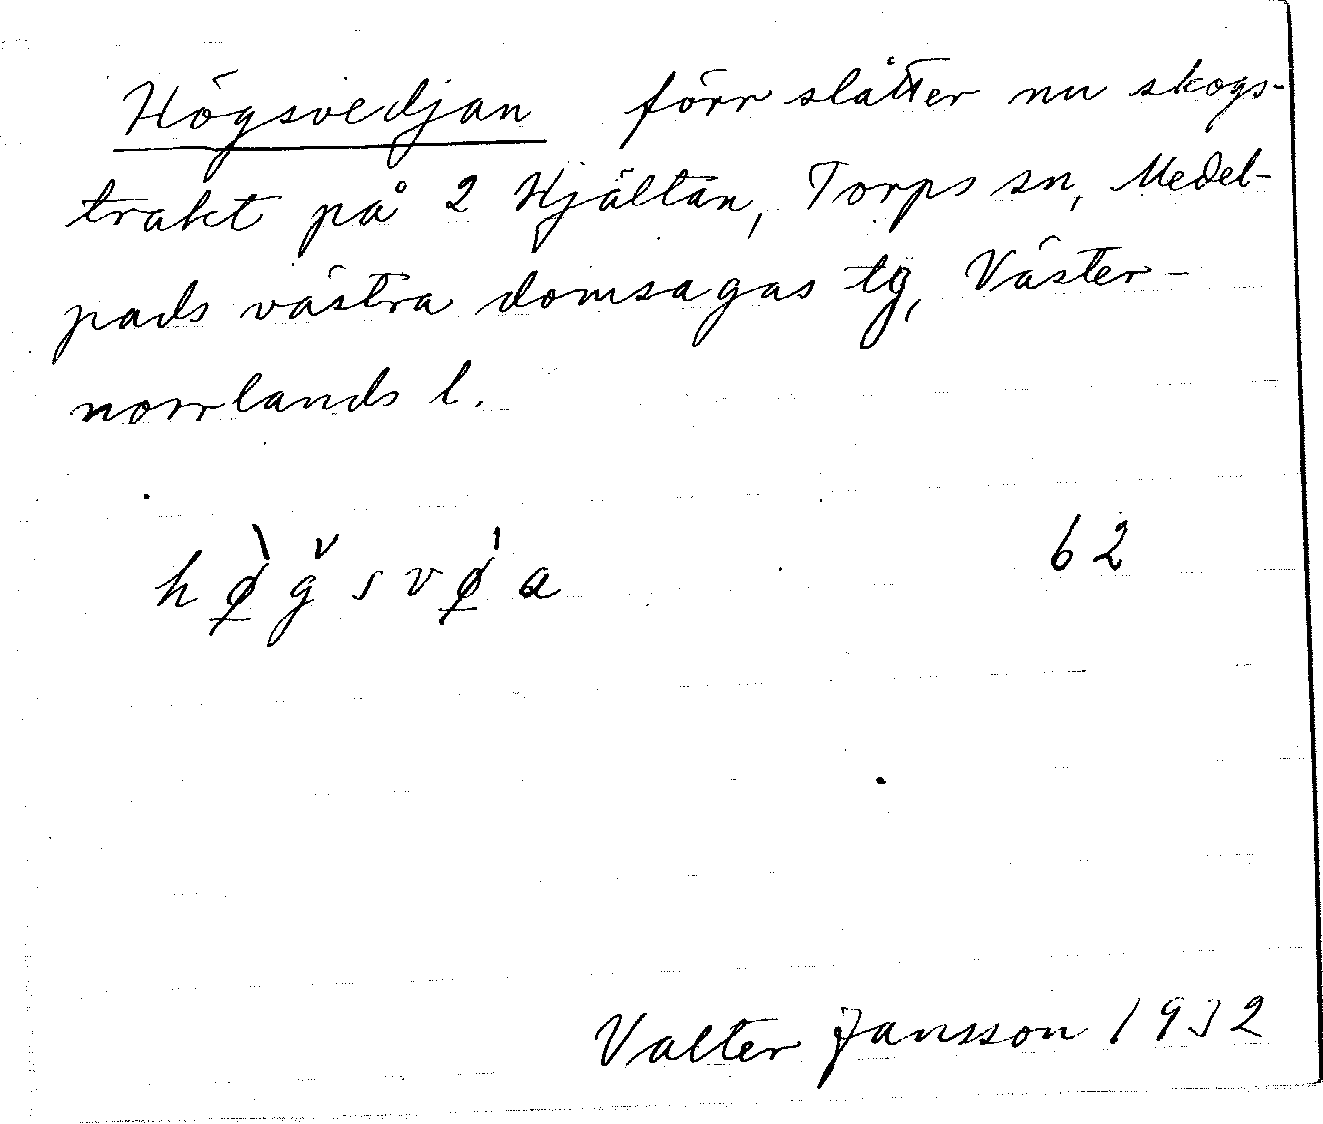 Högsvedjan förr slåtter nu skogs-
trakt på 2 Hjältan, Torps sn, Medel-
pads västra domsagas tg, Väster-
norrlands l.
hø̀ǧsvø̍a 62
Valter Jansson 1932